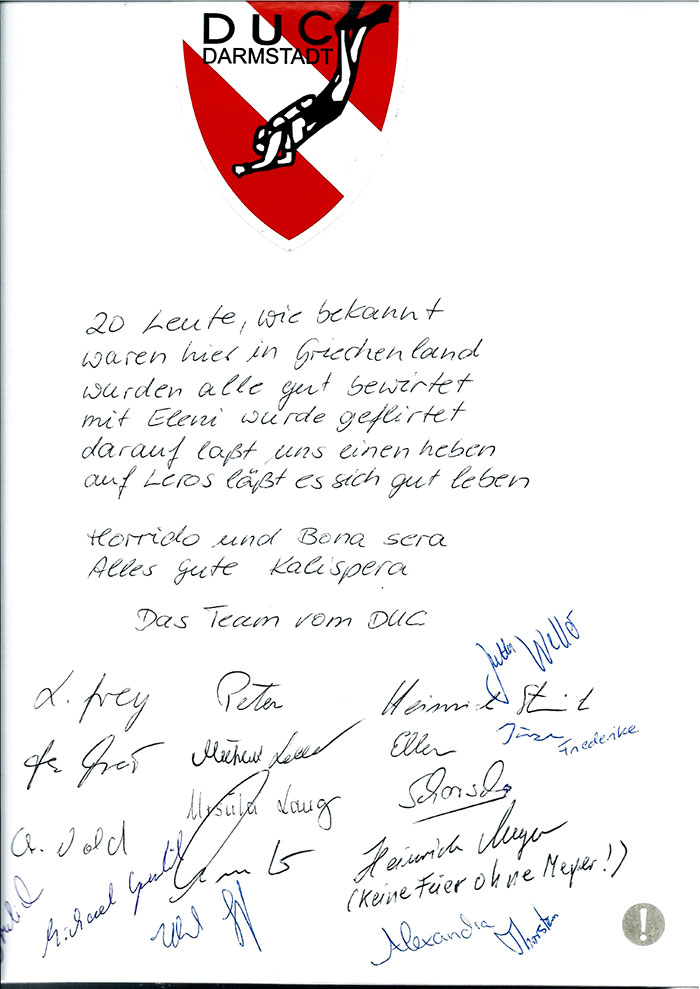 DUC
DARMSTADT
20 Leute, wie bekannt
waren hier in Griechenland
wurden alle gut bewirtet
mit Eleni wurde geflirtet
darauf laßt uns einen heben
auf Leros läßt es sich gut leben
Horrido und Bona sera
Alles gute Kalispera
Das Team vom DUC
Jutta
L. Frey Peter Heinrich
Michael Ellen Friederike
Ursula Lang Schorsch
Heinrich Meyer
(Keine Feier ohne Meyer!)
Michael
Alexandra Thorsten
!